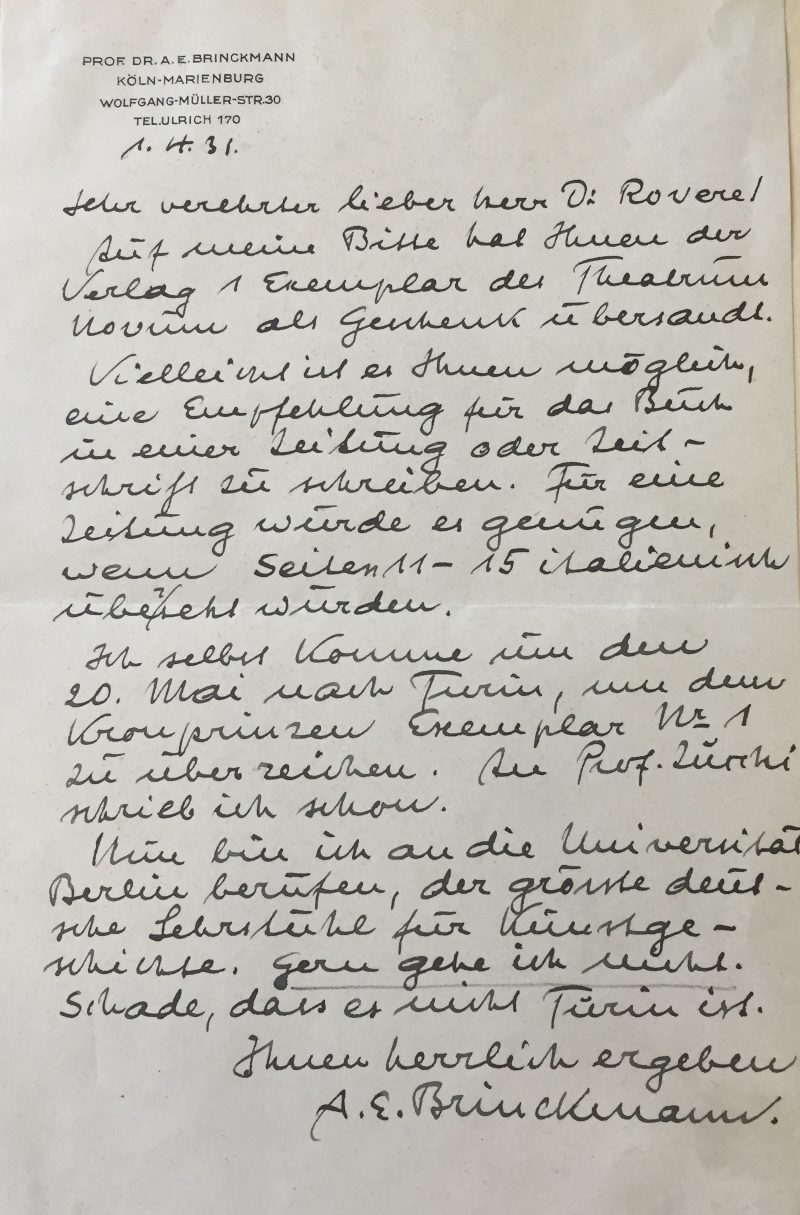 PROF. DR. A. E. BRINCKMANN
KÖLN-MARIENBURG
WOLFGANG-MÜLLER-STR.30
TEL.ULRICH 170
1. 4. 31.
Sehr verehrter lieber Herr Dr. Rovere!
Auf meine Bitte hat Ihnen der
Verlag 1 Exemplar des Theatrum
Novum als Geschenk übersandt.
Vielleicht ist es Ihnen möglich,
eine Empfehlung für das Buch
in einer Zeitung oder Zeit-
schrift zu schreiben. Für eine
Zeitung würde es genügen,
wenn Seiten 11-15 italienisch
übersetzt würden.
Ich selbst komme um den
20. Mai nach Turin, um dem
Kronprinzen Exemplar Nr. 1
zu überreichen. An Prof. Zucchi
schrieb ich schon.
Nun bin ich an die Universität
Berlin berufen, der grösste deut-
sche Lehrstuhl für Kunstge-
schichte. Gern gehe ich nicht.
Schade, dass es nicht Turin ist.
Ihnen herzlich ergeben
A. E. Brinckmann.